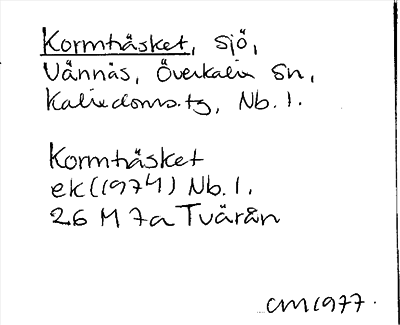 Kormträsket, sjö,
Vännäs, Överkalix sn,
Kalix doms. tg, Nb. l.
Kormträsket
ek (1974) Nb. l.
26 M 7a Tvärån
CM 1977.